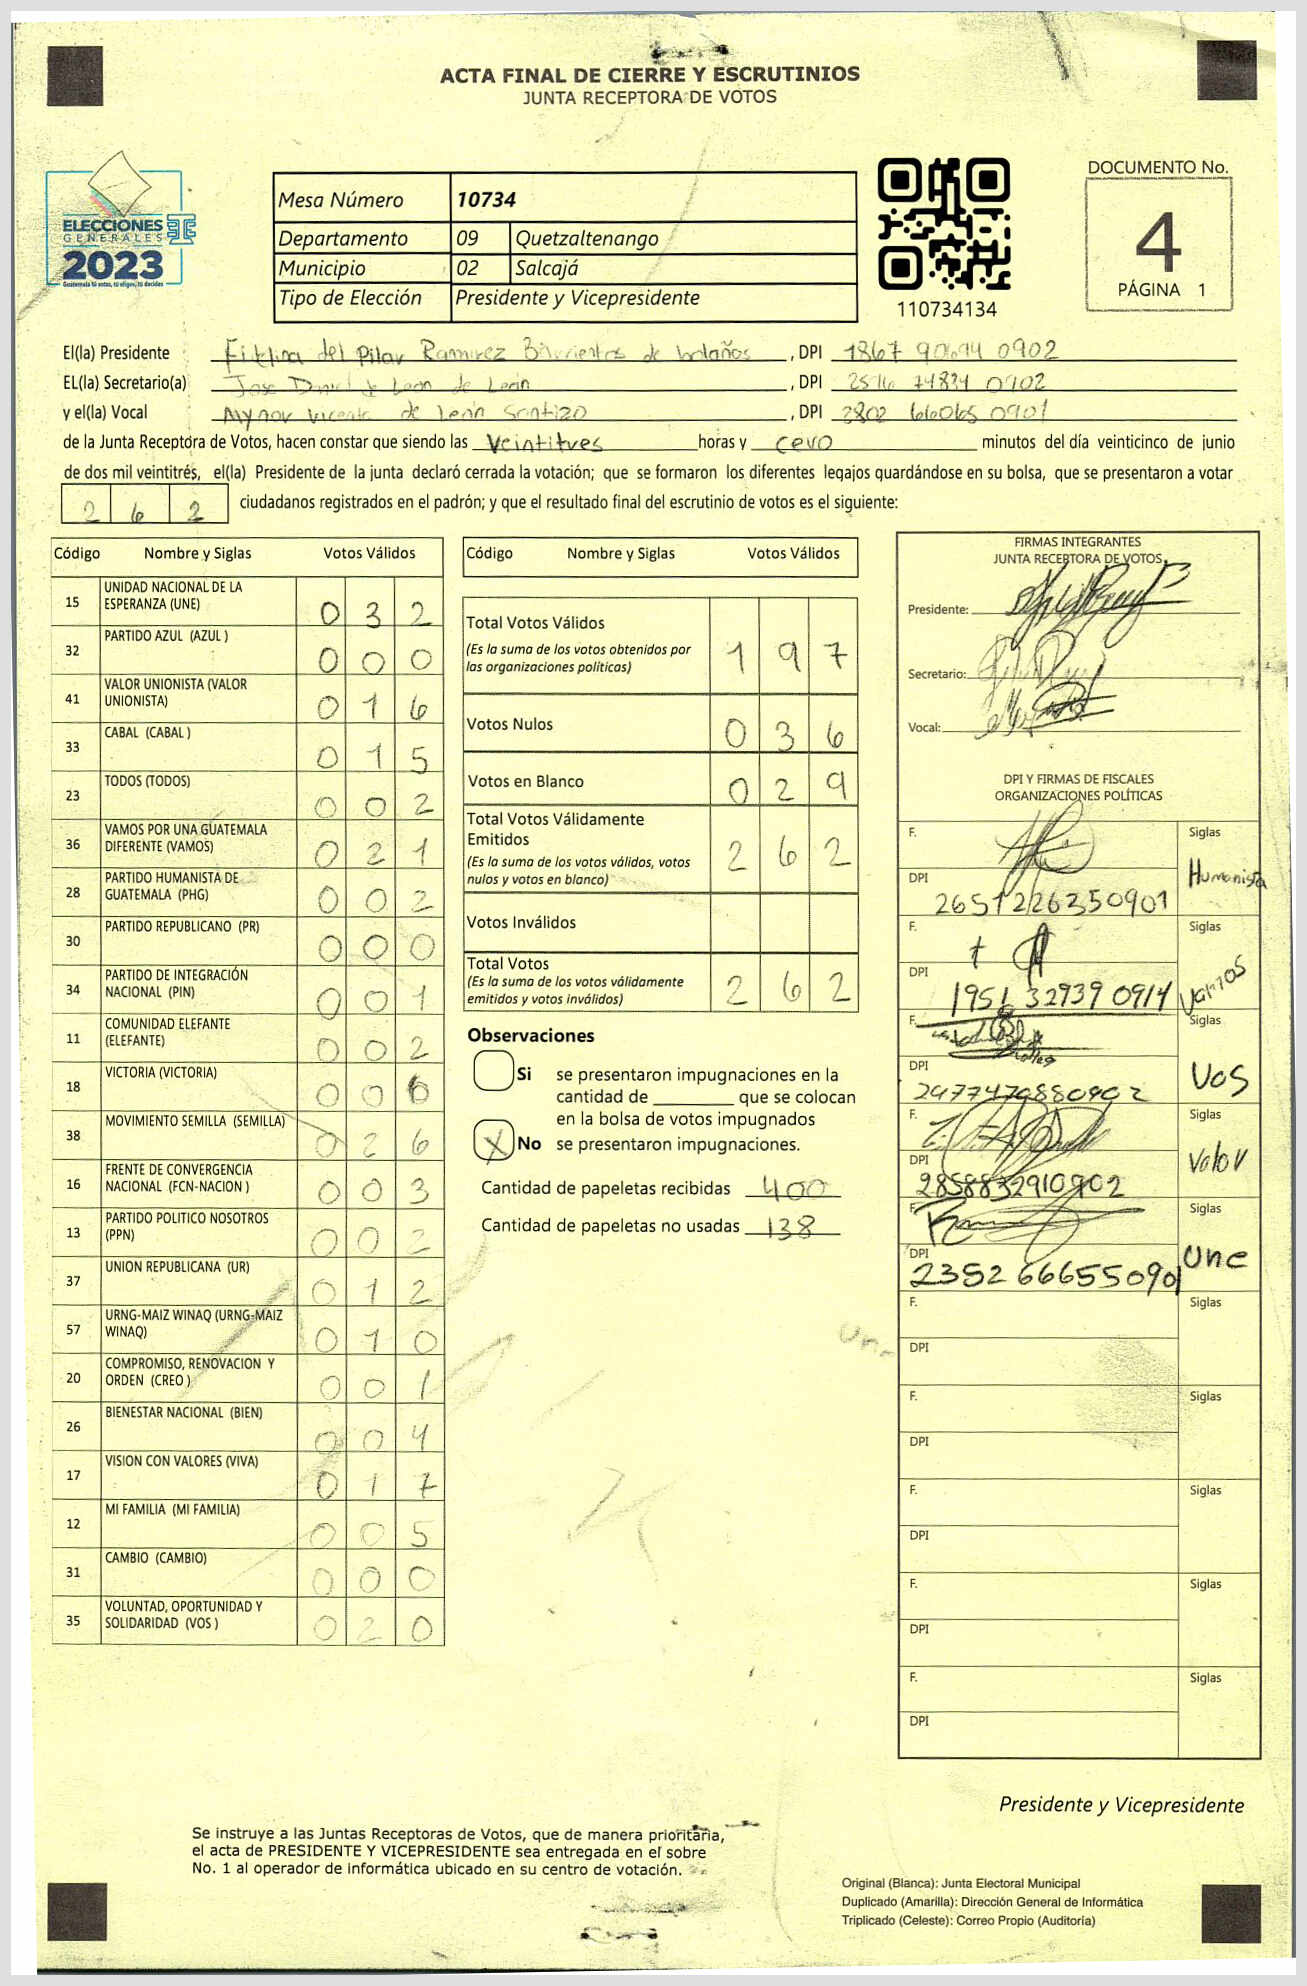 ACTA FINAL DE CIERRE Y ESCRUTINIOS
JUNTA RECEPTORA DE VOTOS
ELECCIONES
GENERALES
2023
Guatemala tú votas, tú eliges, tú decides
Mesa Número 10734
Departamento 09 Quetzaltenango
Municipio 02 Salcajá
Tipo de Elección Presidente y Vicepresidente
110734134
DOCUMENTO No.
4
PÁGINA 1
El(la) Presidente del Pilar Ramirez Barrientos de bolaños , DPI 1867 90694 0902
EL(la) Secretario(a) Jose Daniel de León de León , DPI 2516 74834 0902
y el(la) Vocal Mynor Vicente de León Santizo , DPI 2802 66065 0901
de la Junta Receptora de Votos, hacen constar que siendo las Veintitres horas y cero minutos del día veinticinco de junio
de dos mil veintitrés, el(la) Presidente de la junta declaró cerrada la votación; que se formaron los diferentes legajos guardándose en su bolsa, que se presentaron a votar
262 ciudadanos registrados en el padrón; y que el resultado final del escrutinio de votos es el siguiente:
Código Nombre y Siglas Votos Válidos
15 UNIDAD NACIONAL DE LA ESPERANZA (UNE) 032
32 PARTIDO AZUL (AZUL ) 000
41 VALOR UNIONISTA (VALOR UNIONISTA) 016
33 CABAL (CABAL ) 015
23 TODOS (TODOS) 002
36 VAMOS POR UNA GUATEMALA DIFERENTE (VAMOS) 021
28 PARTIDO HUMANISTA DE GUATEMALA (PHG) 002
30 PARTIDO REPUBLICANO (PR) 000
34 PARTIDO DE INTEGRACIÓN NACIONAL (PIN) 001
11 COMUNIDAD ELEFANTE (ELEFANTE) 002
18 VICTORIA (VICTORIA) 006
38 MOVIMIENTO SEMILLA (SEMILLA) 026
16 FRENTE DE CONVERGENCIA NACIONAL (FCN-NACION ) 003
13 PARTIDO POLITICO NOSOTROS (PPN) 002
37 UNION REPUBLICANA (UR) 012
57 URNG-MAIZ WINAQ (URNG-MAIZ WINAQ) 010
20 COMPROMISO, RENOVACION Y ORDEN (CREO ) 001
26 BIENESTAR NACIONAL (BIEN) 004
17 VISION CON VALORES (VIVA) 017
12 MI FAMILIA (MI FAMILIA) 005
31 CAMBIO (CAMBIO) 000
35 VOLUNTAD, OPORTUNIDAD Y SOLIDARIDAD (VOS ) 020
Código Nombre y Siglas Votos Válidos
Total Votos Válidos 197
(Es la suma de los votos obtenidos por
las organizaciones políticas)
Votos Nulos 036
Votos en Blanco 029
Total Votos Válidamente
Emitidos 262
(Es la suma de los votos válidos, votos
nulos y votos en blanco)
Votos Inválidos
Total Votos 262
(Es la suma de los votos válidamente
emitidos y votos inválidos)
Observaciones
Si se presentaron impugnaciones en la
cantidad de ________ que se colocan
en la bolsa de votos impugnados
X No se presentaron impugnaciones.
Cantidad de papeletas recibidas 400
Cantidad de papeletas no usadas 138
FIRMAS INTEGRANTES
JUNTA RECEPTORA DE VOTOS
Presidente:
Secretario:
Vocal:
DPI Y FIRMAS DE FISCALES
ORGANIZACIONES POLÍTICAS
F. Siglas
DPI 2651226350901 Humanista
F. Siglas
DPI 1951 32939 0914 Vamos
F. Siglas
DPI 2977470880902 VOS
F. Siglas
DPI 2858832910902 Valor
F. Siglas
DPI 2352 66655 0901 Une
F. Siglas
DPI
F. Siglas
DPI
F. Siglas
DPI
F. Siglas
DPI
F. Siglas
DPI
Une
Presidente y Vicepresidente
Se instruye a las Juntas Receptoras de Votos, que de manera prioritaria,
el acta de PRESIDENTE Y VICEPRESIDENTE sea entregada en el sobre
No. 1 al operador de informática ubicado en su centro de votación.
Original (Blanca): Junta Electoral Municipal
Duplicado (Amarilla): Dirección General de Informática
Triplicado (Celeste): Correo Propio (Auditoría)